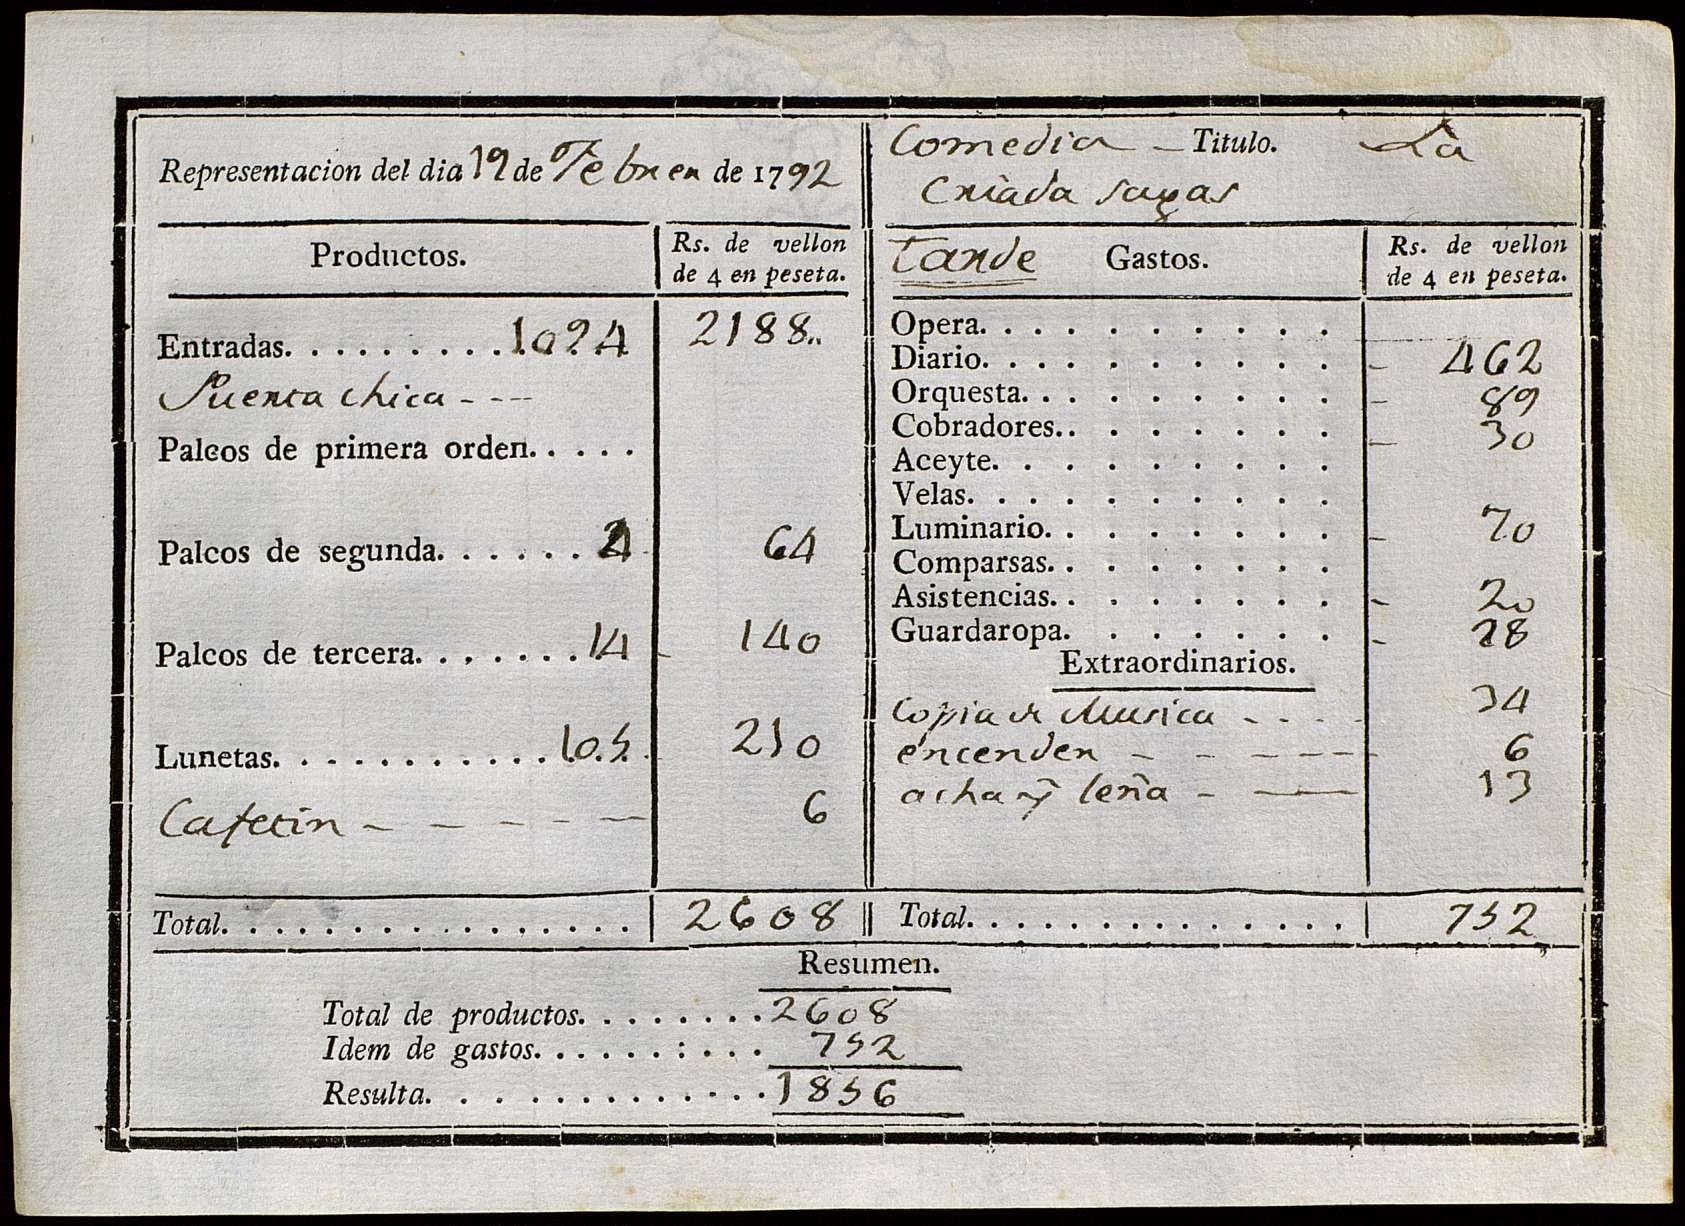 Representacion del dia 19 de Febrero de 1792
Comedia - Titulo. La
Criada sagas
Productos.
Rs. de vellon
de 4 en peseta.
Entradas. 1094 2188
Puerta chica
Palcos de primera orden.
Palcos de segunda. 4 64
Palcos de tercera. 14 140
Lunetas. 105 210
Cafetin 6
Total. 2608
Tarde Gastos.
Rs. de vellon
de 4 en peseta.
Opera.
Diario. 462
Orquesta. 89
Cobradores. 30
Aceyte.
Velas.
Luminario. 70
Comparsas.
Asistencias. 20
Guardaropa. 28
Extraordinarios.
Copia de Musica 34
encender 6
acha y leña 13
Total. 752
Resumen.
Total de productos. 2608
Idem de gastos. 752
Resulta. 1856